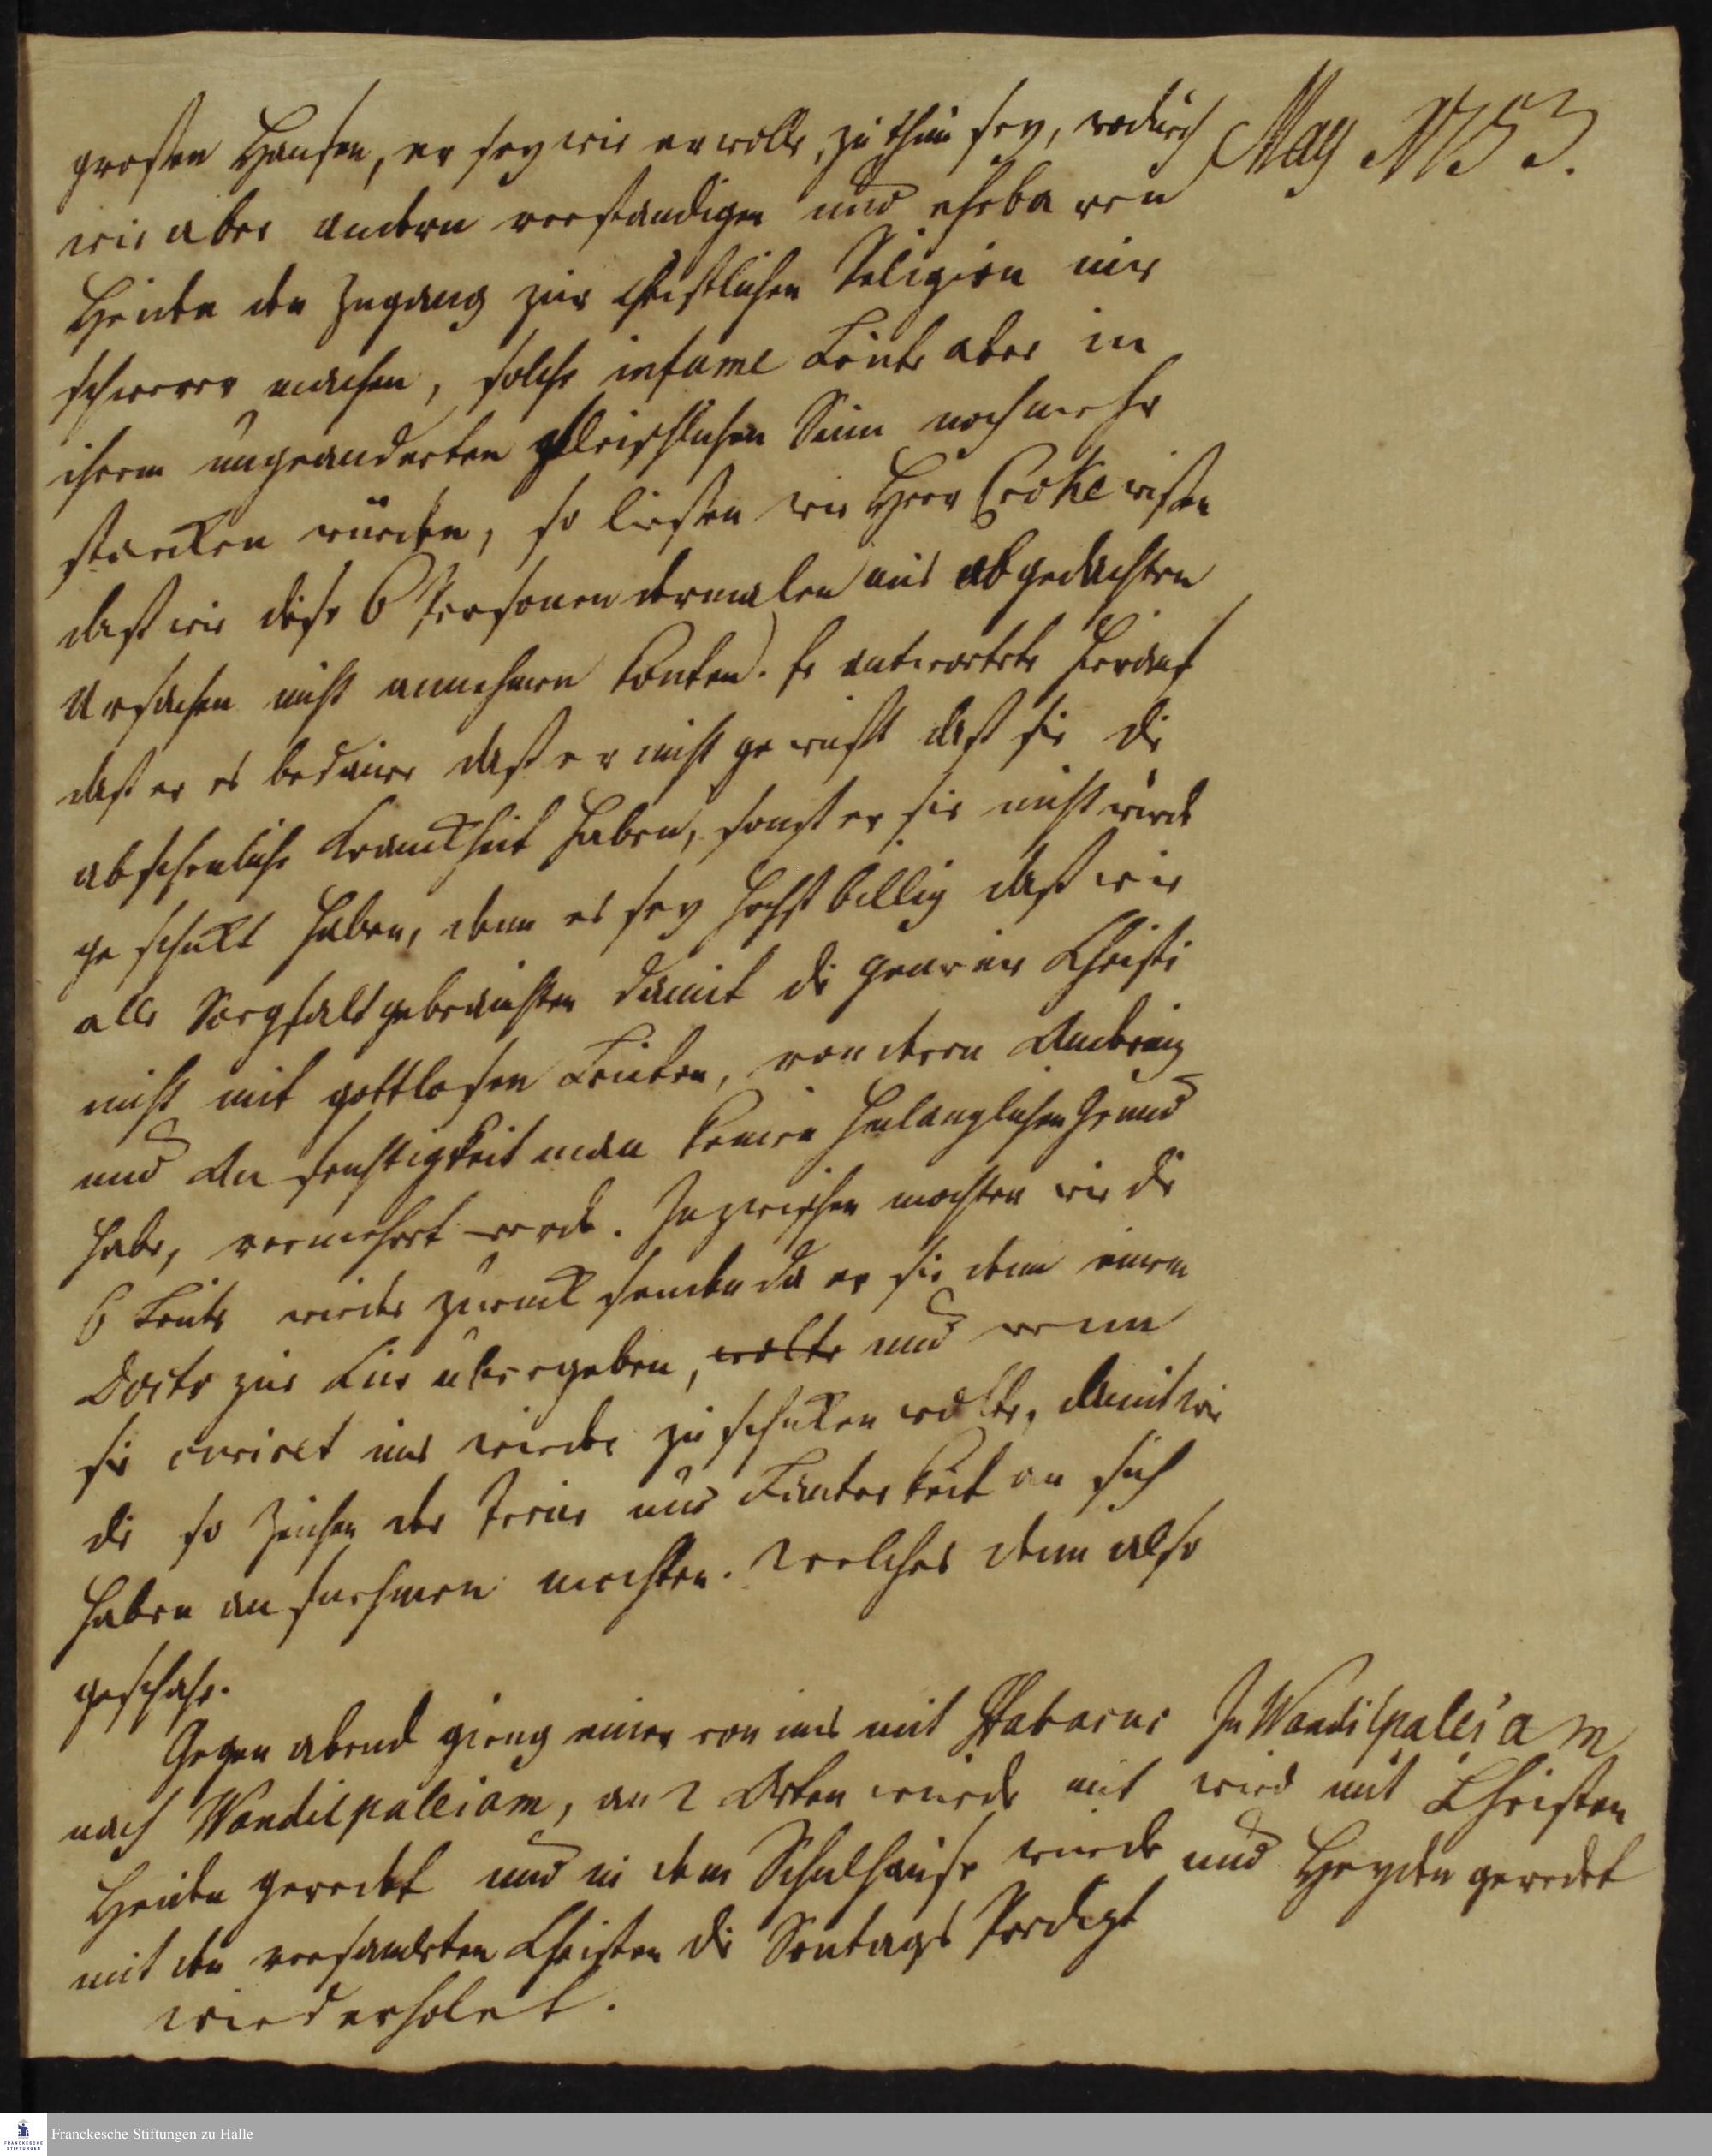 May 1753.
großen Haufen, er sey wie er wolle, zu thun sey, wodurch
wir aber andern verständigen und ehrbaren
Heiden den Zugang zur christlichen Religion nur
schwerer machen, solche infame Leute aber in
ihrem ungeänderten fleischlichen Sinn noch mehr
stärcken würden, so ließen wir Herr Cooke wißen
daß wir diese 6 Personen dermalen aus obgedachten
Ursachen nicht annehmen könten. Er antwortete hierauf
daß er es bedaure daß er nicht gewust daß sie die
abscheuliche Kranckheit haben, sonst er sie nicht würde
geschickt haben, denn es sey höchst billig daß wir
alle Sorgfalt gebrauchten damit die Gemeine Christi
nicht mit gottlosen Leuten, von deren Aenderung
und Aufrichtigkeit man keinen hinlänglichen Grund
habe, vermehrt werde. Inzwischen möchten wir die
6 Leute wieder zurück senden da er sie dem einem
Doctor zur Cur übergeben, wolte und wenn
sie curiret uns wieder zu schicken wolte, damit wir
die so Zeichen der Treue und Lauterkeit an sich
haben annehmen möchten. Welches denn also
geschahe.
Gegen abend gieng einer von uns mit Habacuc
nach Wandispalleiam, an 2 Orten wurde mit
Heiden geredet und in dem Schulhause wurde
mit den versamleten Christen die Sontags Predigt
wiederholet.
In Wandispalleiam
wird mit Christen
und Heyden geredet
Franckesche Stiftungen zu Halle